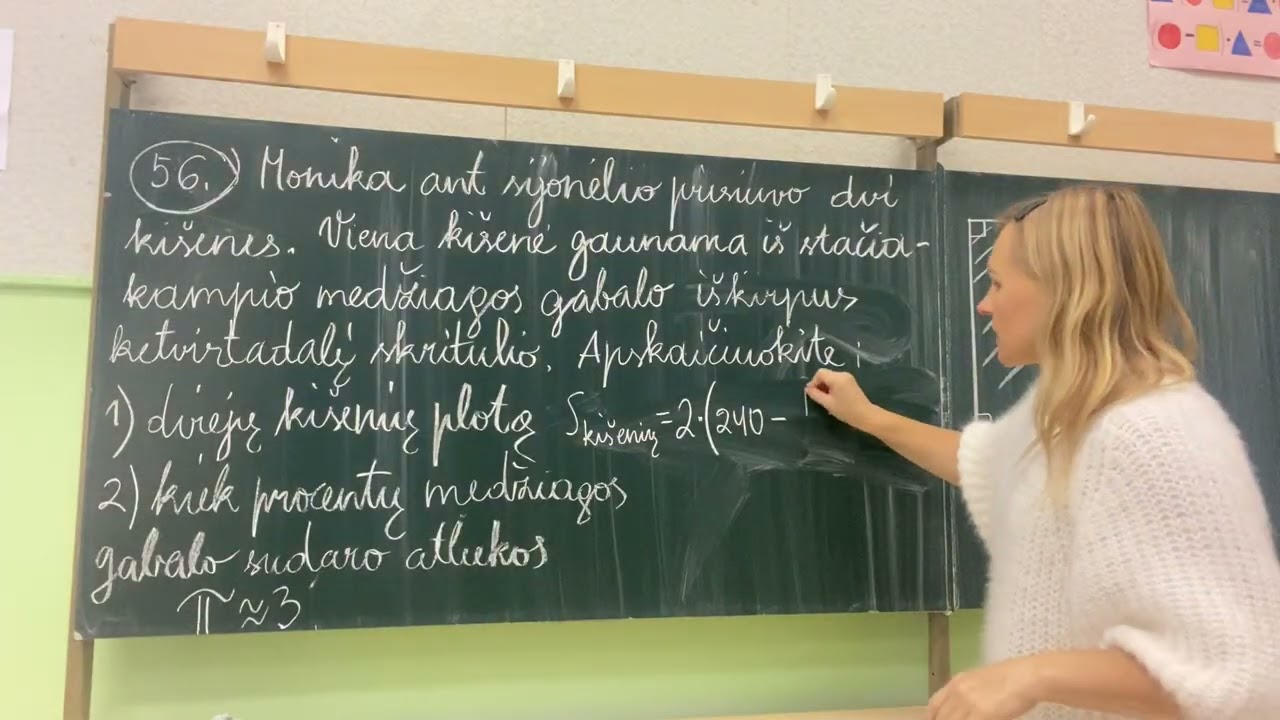 56. Monika ant sijonėlio prisiuvo dvi
kišenes. Viena kišenė gaunama iš stačia-
kampio medžiagos gabalo iškirpus
ketvirtadalį skritulio. Apskaičiuokite:
1) dviejų kišenių plotą S kišenių = 2·(240 -
2) kiek procentų medžiagos
gabalo sudaro atliekos
π ≈ 3